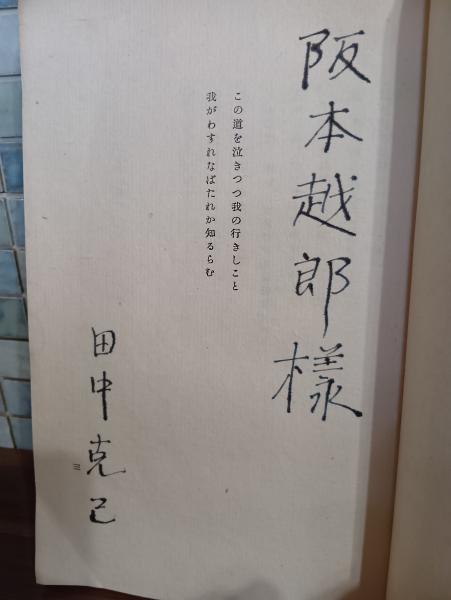 阪本越郎様
この道を泣きつつ我の行きしこと
我がわすれなばたれか知るらむ
田中克己
三